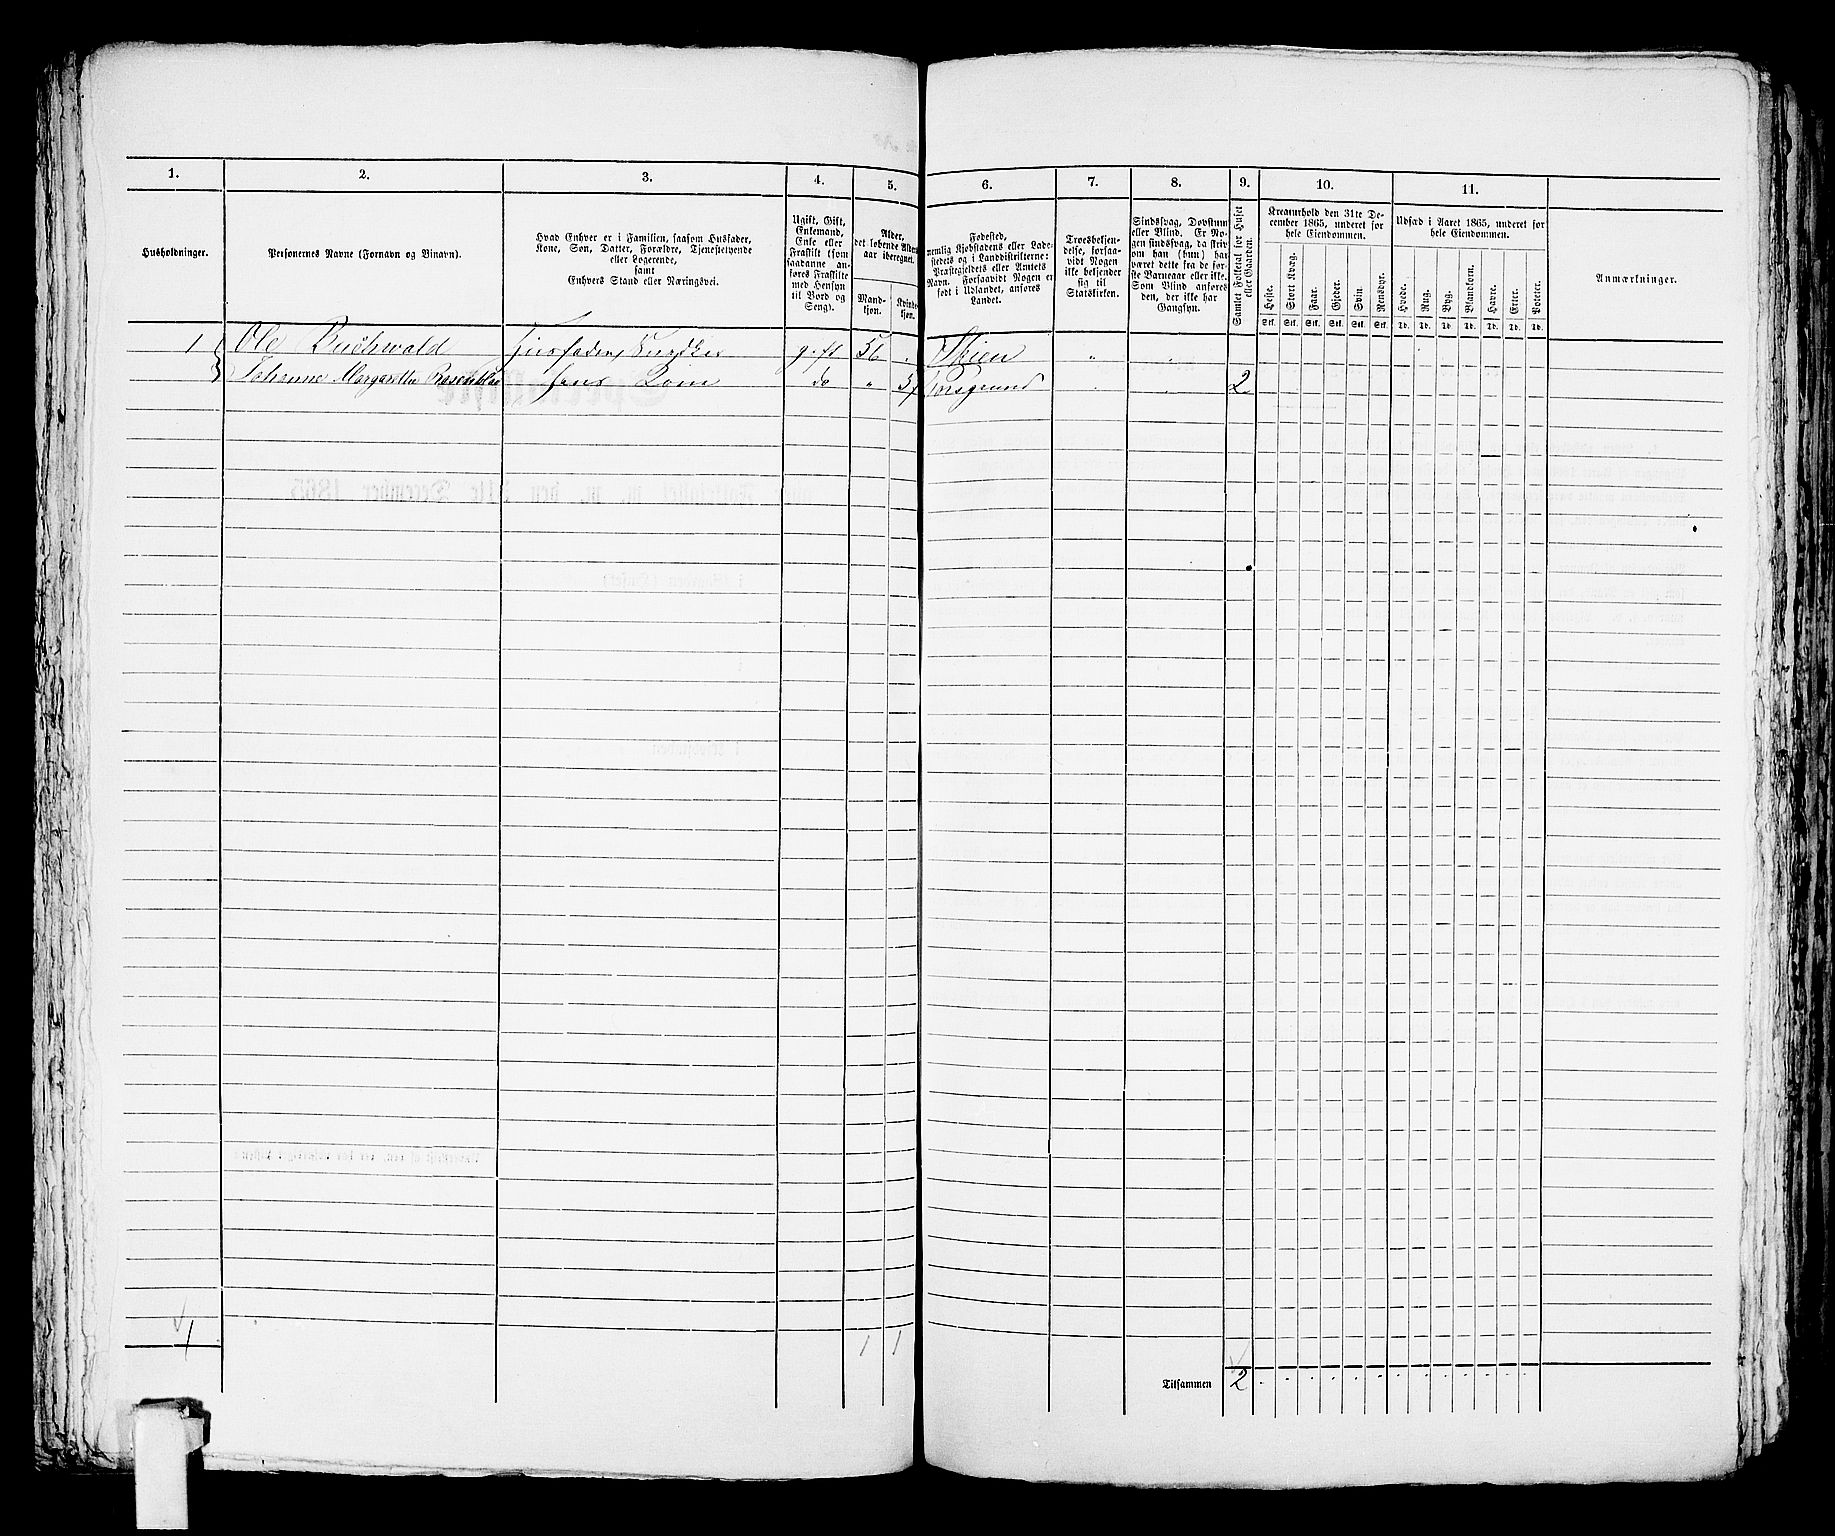 1. 2. 3. 4. 5. 6. 7. 8. 9. 10. 11.
Husholdninger.
Personernes Navne (Fornavn og Binavn).
Hvad Enhver er i Familien, saasom Husfader,
Kone, Søn, Datter, Forældre, Tjenestetyende
eller Logerende,
samt
Enhvers Stand eller Næringsvei.
Ugift, Gift,
Enkemand,
Enke eller
Fraskilt (som
saadanne an-
føres Fraskilte
med Hensyn
til Bord og
Seng).
Alder,
det løbende Alders-
aar iberegnet.
Mand-
kjøn.
Kvinde-
kjøn.
Fødested,
nemlig Kjøbstadens eller Lade-
stedets og i Landdistrikterne:
Præstegjeldets eller Amtets
Navn. Forsaavidt Nogen er
født i Udlandet, anføres
Landet.
Troesbekjen-
delse, forsaa-
vidt Nogen
ikke bekjender
sig til
Statskirken.
Sindssvag, Døvstum
eller Blind. Er No-
gen sindssvag, da skriv
om han (hun) har
været dette fra de før-
ste Barneaar eller ikke.
Som Blind anføres
den, der ikke har
Gangsyn.
Samlet Folketal for Huset
eller Gaarden.
Kreaturhold den 31te De-
cember 1865, underet for
hele Eiendommen.
Heste. Stort Kvæg. Faar. Gjeder. Svin. Rensdyr.
Stk. Stk. Stk. Stk. Stk. Stk.
Udsæd i Aaret 1865, underet for
hele Eiendommen.
Hvede. Rug. Byg. Blandkorn. Havre. Erter. Poteter.
Td. Td. Td. Td. Td. Td. Td.
Anmærkninger.
1 Ole Buchwald Husfader, gift 56 " Skien " "
Johanne Margarethe hans do " Porsgrund 2
1 1 1
Tilsammen 2